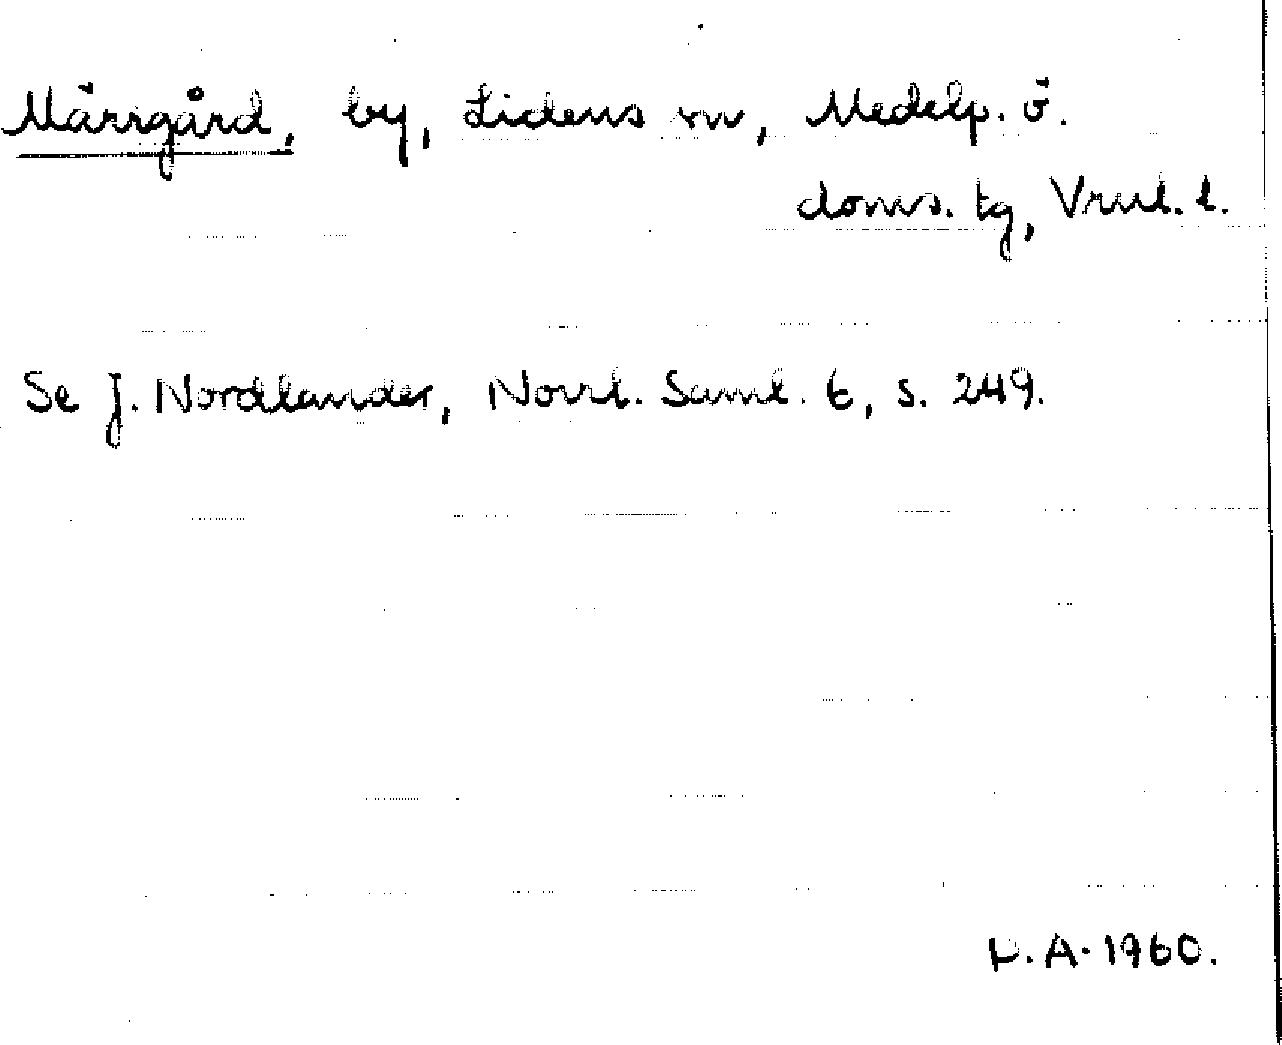 Märrgård, by, Lidens sn, Medelp. ö.
doms. tg, Vrnl. l.
Se J. Nordlander, Norrl. Saml. 6, s. 249.
A. 1960.